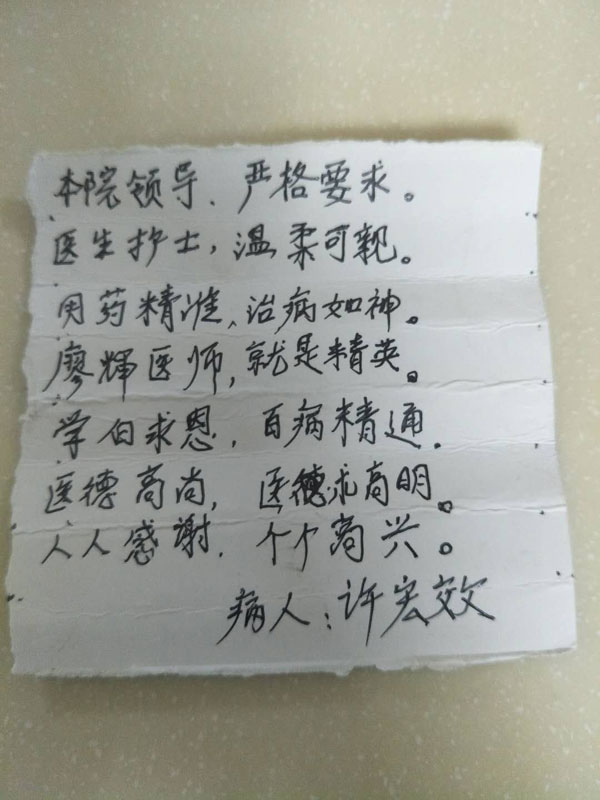 本院领导、严格要求。
医生护士，温柔可亲。
用药精准、治病如神。
廖輝医师，就是精英。
学白求恩，百病精通。
医德高尚，医术高明。
人人感谢，个个高兴。
病人：许宏效